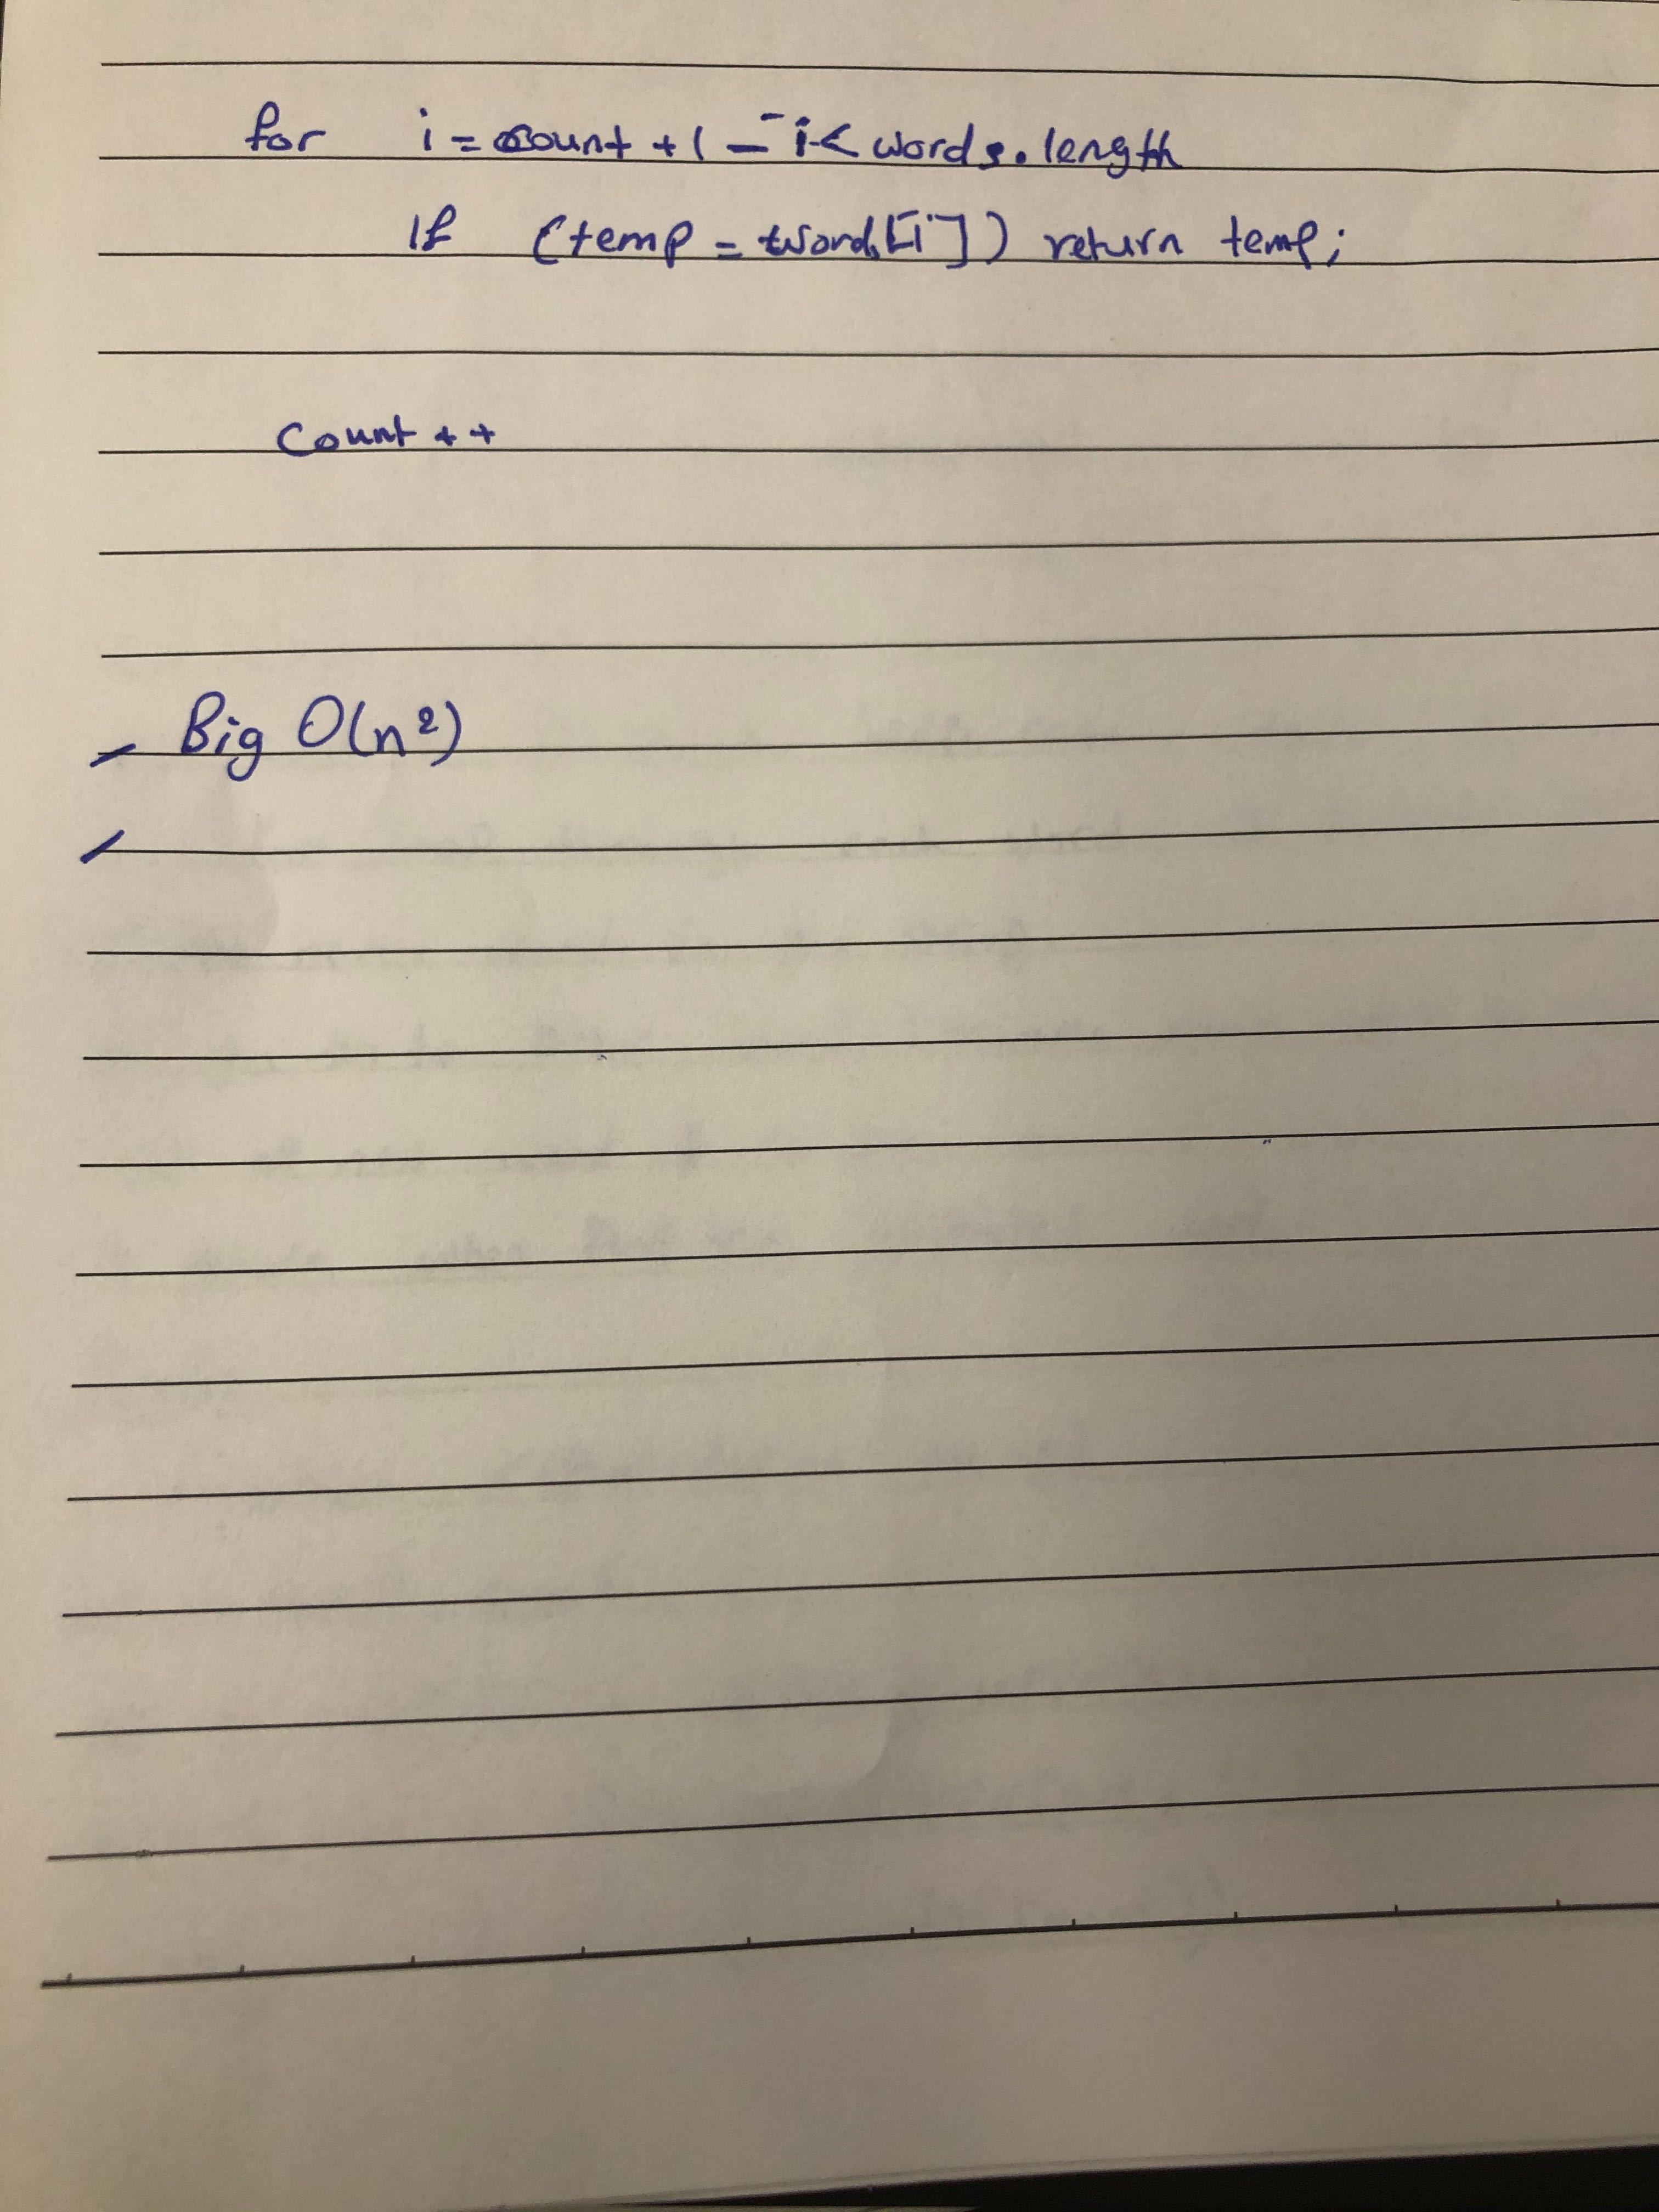 for i = count + 1 - i < words.length
If (temp = words[i]) return temp;
Count ++
- Big O(n²)
-